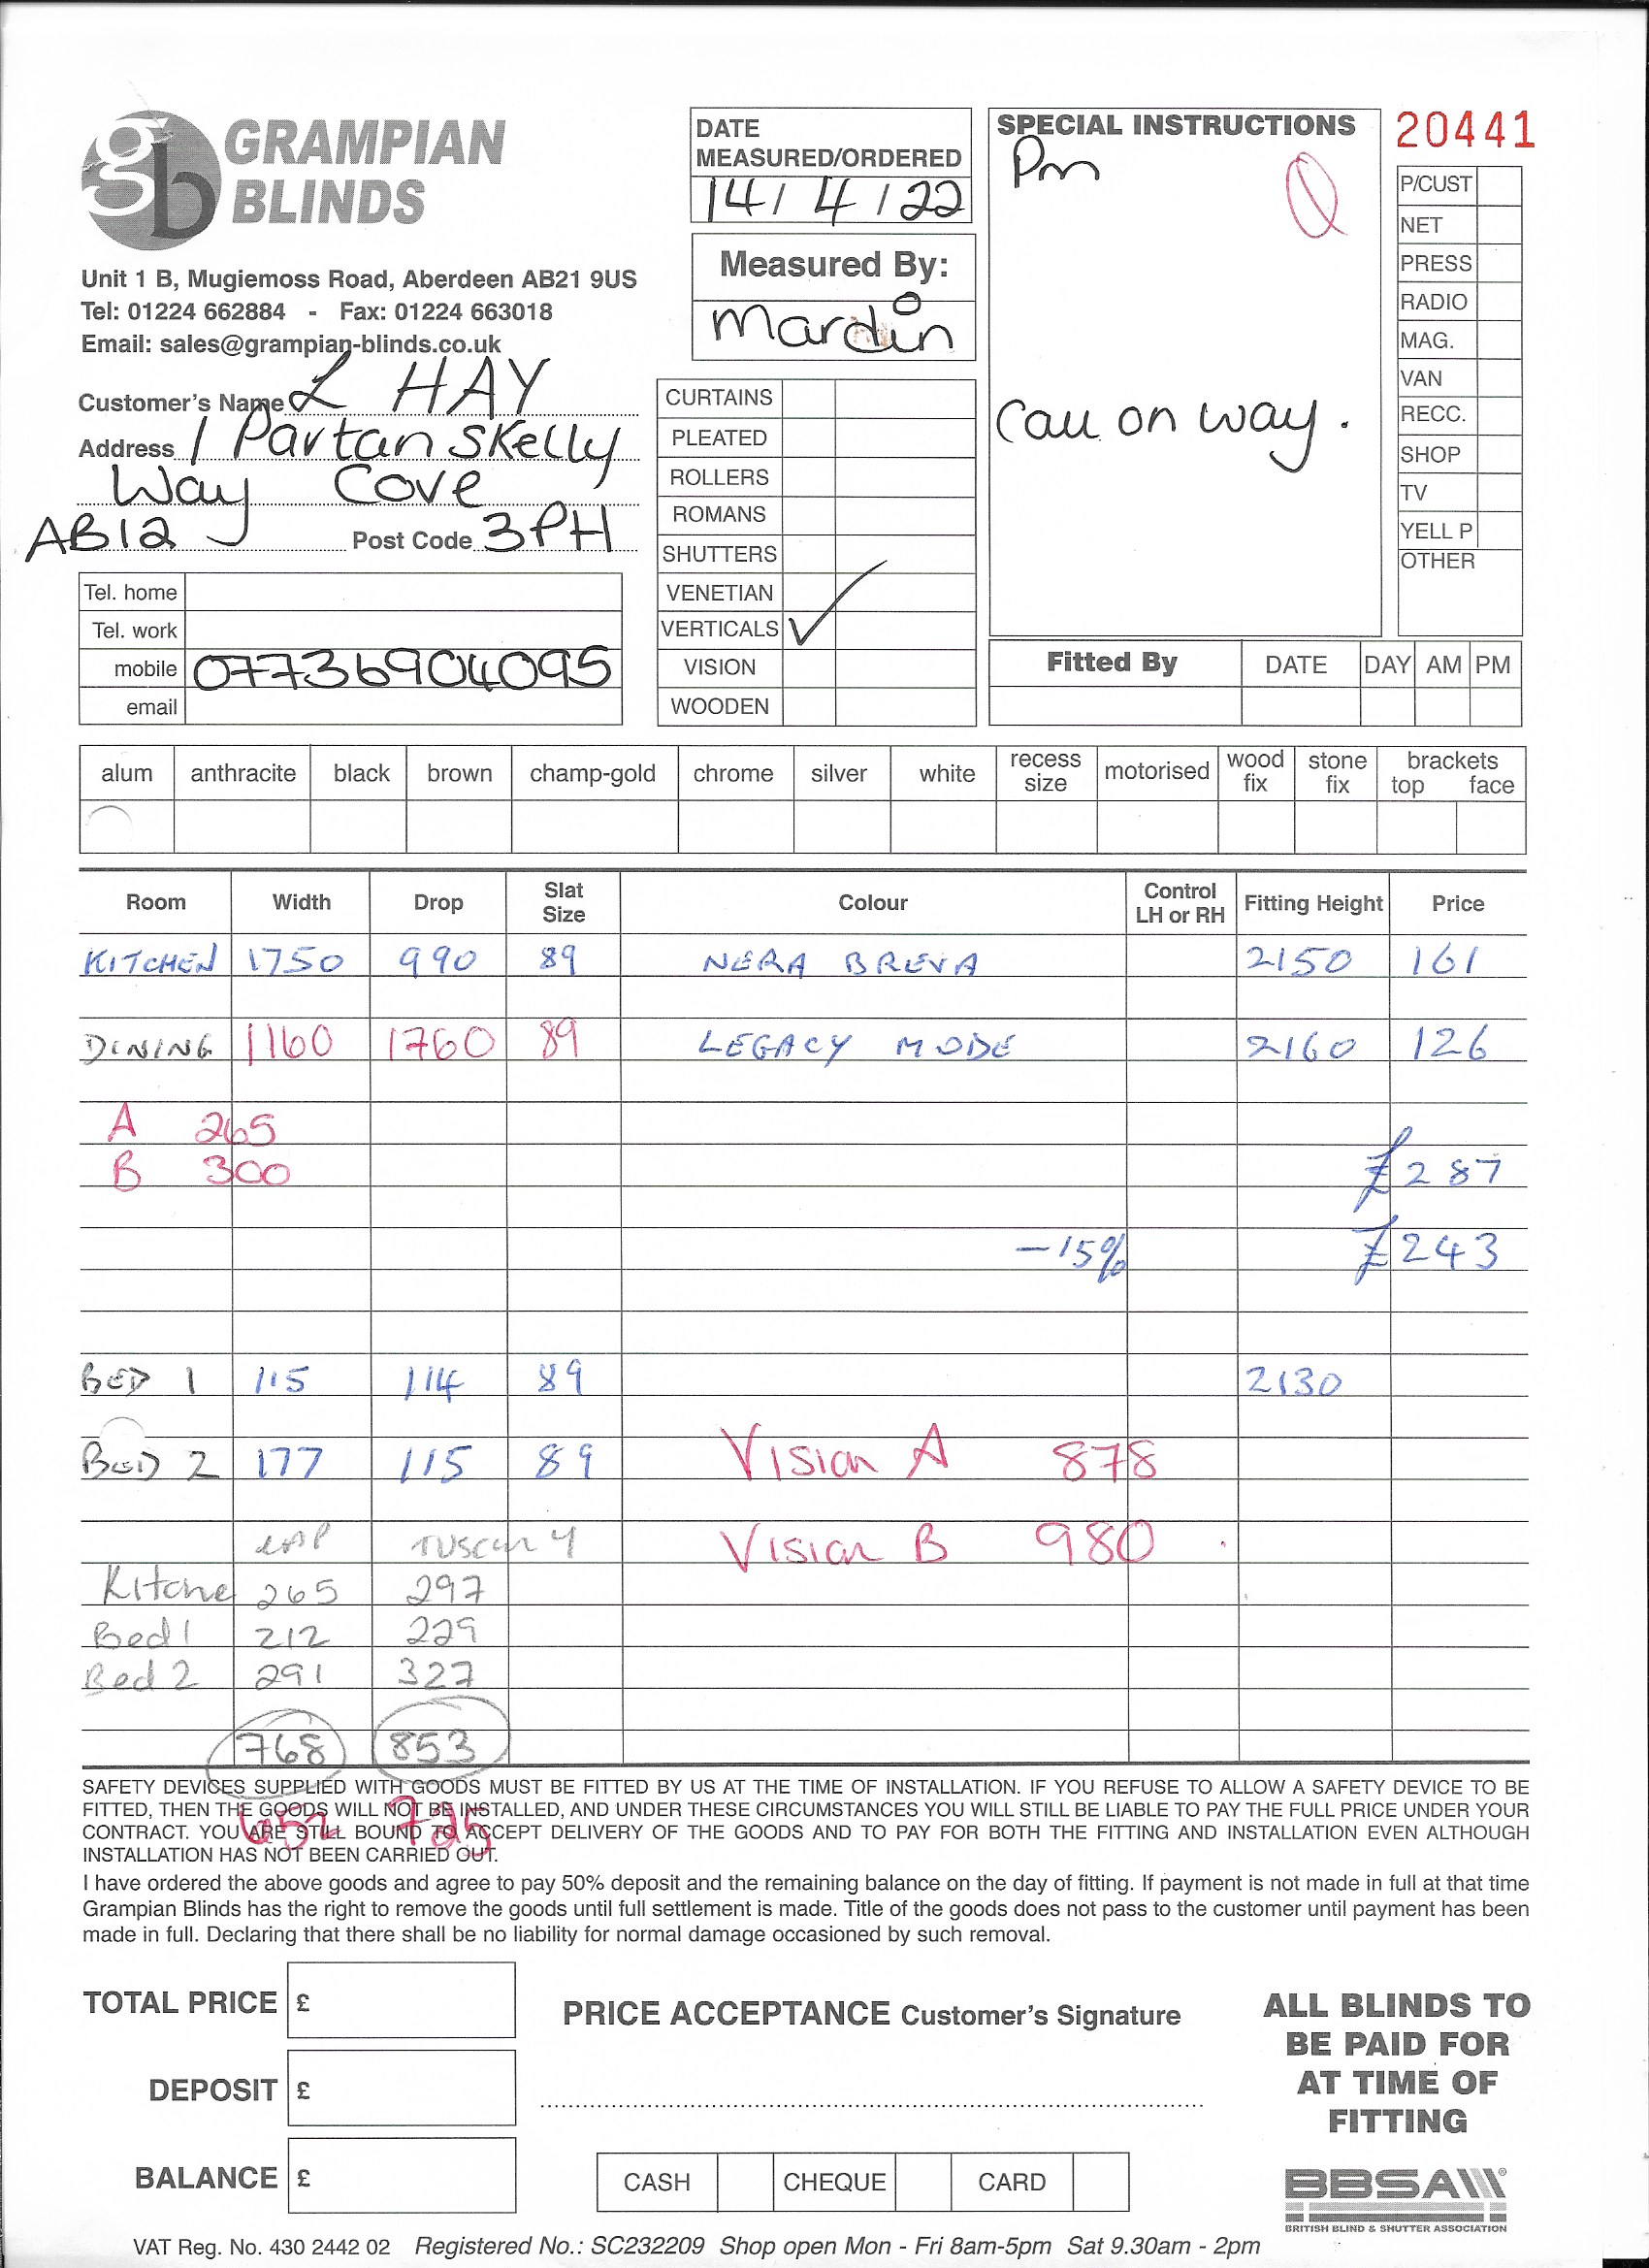 GRAMPIAN
BLINDS
Unit 1 B, Mugiemoss Road, Aberdeen AB21 9US
Tel: 01224 662884 - Fax: 01224 663018
Email: sales@grampian-blinds.co.uk
Customer's Name L HAY
Address 1 Partan Skelly
Way Cove
AB12 Post Code 3PH
Tel. home
Tel. work
mobile 07736904095
email
DATE
MEASURED/ORDERED
14/4/22
Measured By:
Martin
CURTAINS
PLEATED
ROLLERS
ROMANS
SHUTTERS
VENETIAN
VERTICALS ✓
VISION
WOODEN
SPECIAL INSTRUCTIONS
Pm
Call on way.
20441
P/CUST
NET
PRESS
RADIO
MAG.
VAN
RECC.
SHOP
TV
YELL P
OTHER
Fitted By DATE DAY AM PM
alum anthracite black brown champ-gold chrome silver white recess size motorised wood fix stone fix brackets top face
Room Width Drop Slat Size Colour Control LH or RH Fitting Height Price
KITCHEN 1750 990 89 NERA BREVA 2150 161
DINING 1160 1760 89 LEGACY MODE 2160 126
A 265
B 300 £287
-15% £243
BED 1 115 114 89 2130
BED 2 177 115 89 Vision A 878
TUSCANY Vision B 980
Kitche 265 297
Bed 1 212 229
Bed 2 291 327
768 853
652 725
SAFETY DEVICES SUPPLIED WITH GOODS MUST BE FITTED BY US AT THE TIME OF INSTALLATION. IF YOU REFUSE TO ALLOW A SAFETY DEVICE TO BE
FITTED, THEN THE GOODS WILL NOT BE INSTALLED, AND UNDER THESE CIRCUMSTANCES YOU WILL STILL BE LIABLE TO PAY THE FULL PRICE UNDER YOUR
CONTRACT. YOU ARE STILL BOUND TO ACCEPT DELIVERY OF THE GOODS AND TO PAY FOR BOTH THE FITTING AND INSTALLATION EVEN ALTHOUGH
INSTALLATION HAS NOT BEEN CARRIED OUT.
I have ordered the above goods and agree to pay 50% deposit and the remaining balance on the day of fitting. If payment is not made in full at that time
Grampian Blinds has the right to remove the goods until full settlement is made. Title of the goods does not pass to the customer until payment has been
made in full. Declaring that there shall be no liability for normal damage occasioned by such removal.
TOTAL PRICE £
DEPOSIT £
BALANCE £
PRICE ACCEPTANCE Customer's Signature
CASH CHEQUE CARD
ALL BLINDS TO
BE PAID FOR
AT TIME OF
FITTING
BBSA
BRITISH BLIND & SHUTTER ASSOCIATION
VAT Reg. No. 430 2442 02 Registered No.: SC232209 Shop open Mon - Fri 8am-5pm Sat 9.30am - 2pm